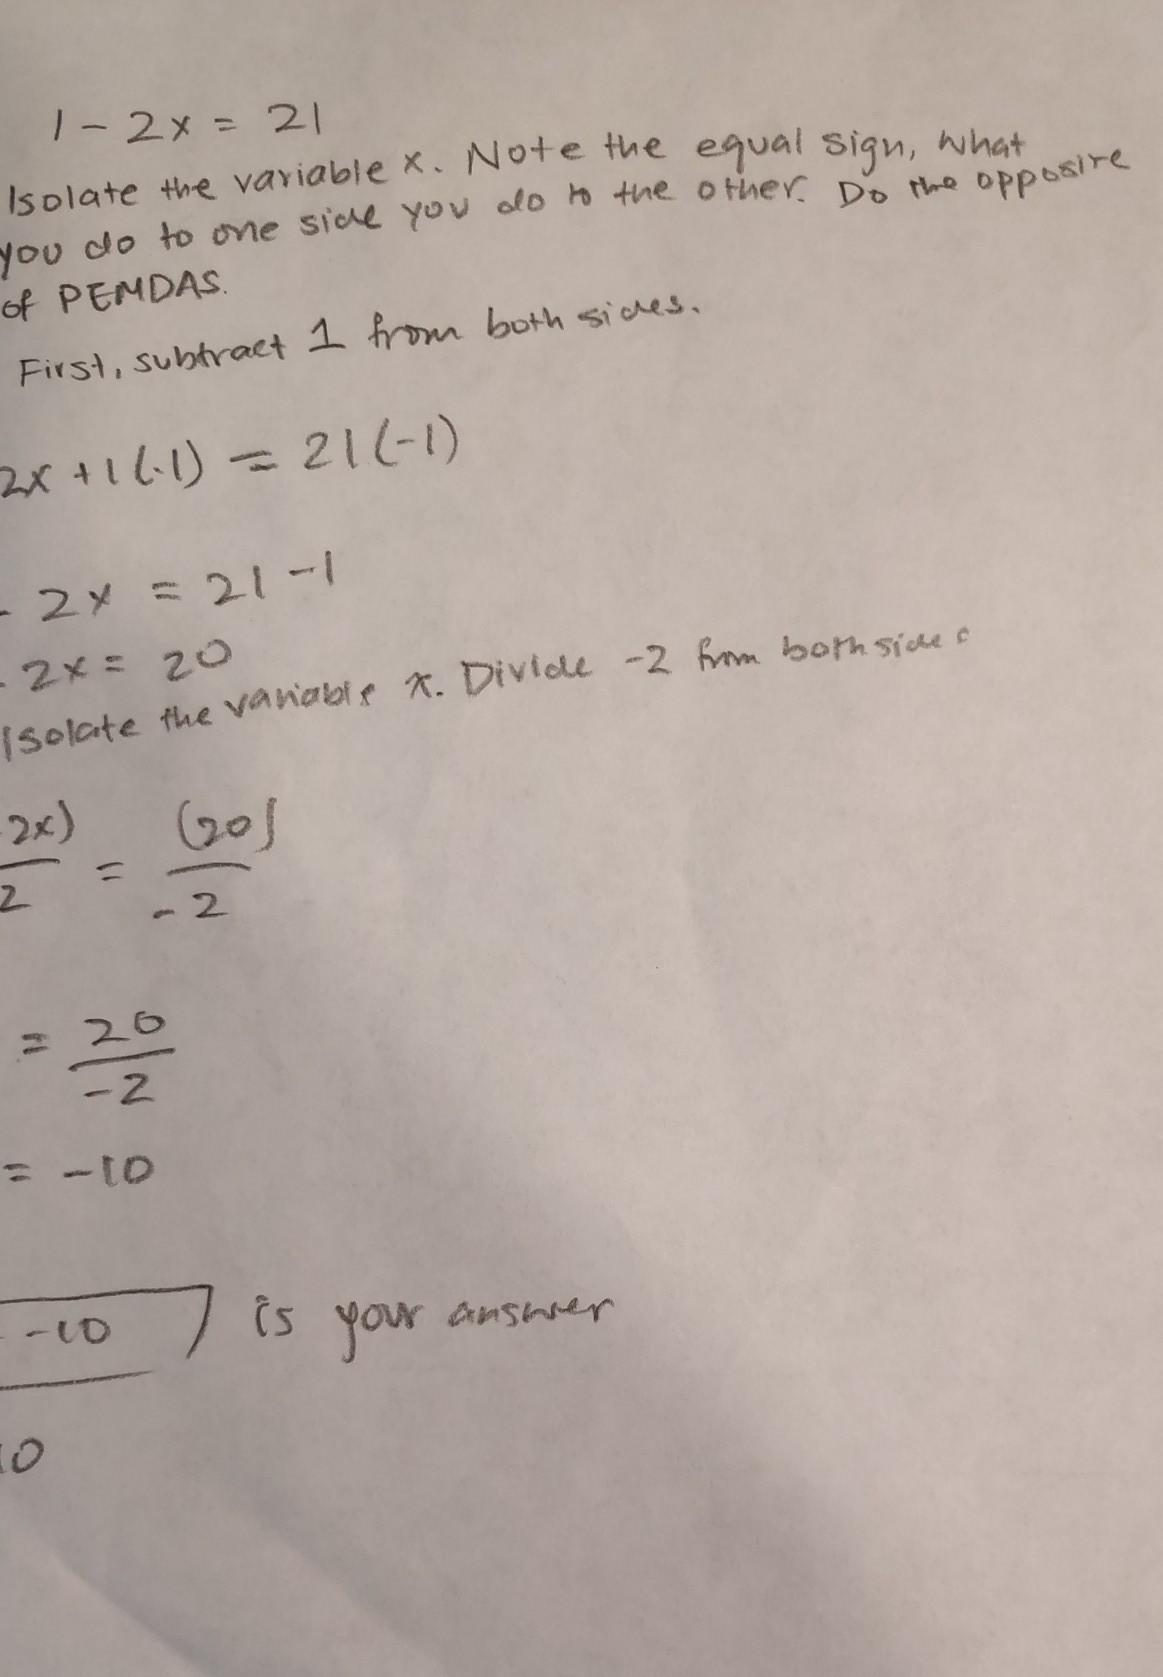 1 - 2x = 21
Isolate the variable x. Note the equal sign, what
you do to one side you do to the other. Do the opposite
of PEMDAS.
First, subtract 1 from both sides.
2x + 1 (-1) = 21 (-1)
- 2x = 21 - 1
- 2x = 20
Isolate the variable x. Divide -2 from both sides
2x) = (20)
2 -2
= 20
-2
= -10
-10 is your answer
10